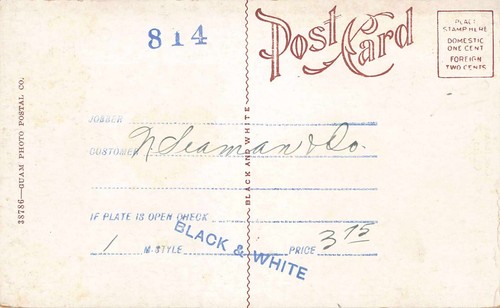 814
Post Card
PLACE
STAMP HERE
DOMESTIC
ONE CENT
FOREIGN
TWO CENTS
38786—GUAM PHOTO POSTAL CO.
BLACK AND WHITE
JOBBER
CUSTOMER N Seaman & Co.
IF PLATE IS OPEN CHECK
1 M. STYLE PRICE 3 75
BLACK & WHITE